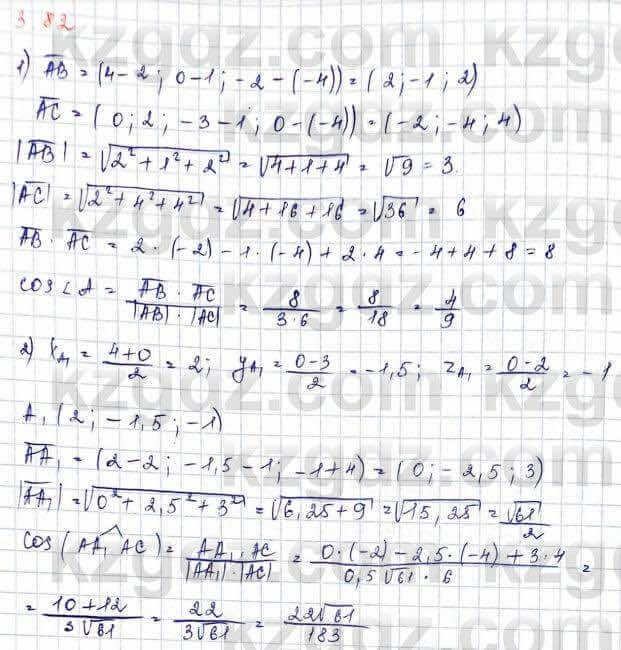 3 82
1) AB = (4-2; 0-1; -2-(-4)) = (2; -1; 2)
AC = (0; 2; -3-1; 0-(-4)) = (-2; -4; 4)
|AB| = √2²+1²+2² = √4+1+4 = √9 = 3.
|AC| = √2²+4²+4² = √4+16+16 = √36 = 6
AB · AC = 2·(-2)-1·(-4)+2·4 = -4+4+8 = 8
cos∠A = AB · AC / |AB|·|AC| = 8/3·6 = 8/18 = 4/9
2) x_A₁ = 4+0/2 = 2; y_A₁ = 0-3/2 = -1,5; z_A₁ = 0-2/2 = -1
A₁(2; -1,5; -1)
AA₁ = (2-2; -1,5-1; -1+4) = (0; -2,5; 3)
|AA₁| = √0²+2,5²+3² = √6,25+9 = √15,25 = √61/2
cos(AA₁ AC) = AA₁ · AC / |AA₁|·|AC| = 0·(-2)-2,5·(-4)+3·4 / 0,5√61·6 =
= 10+12/3√61 = 22/3√61 = 22√61/183
kzgdz.com